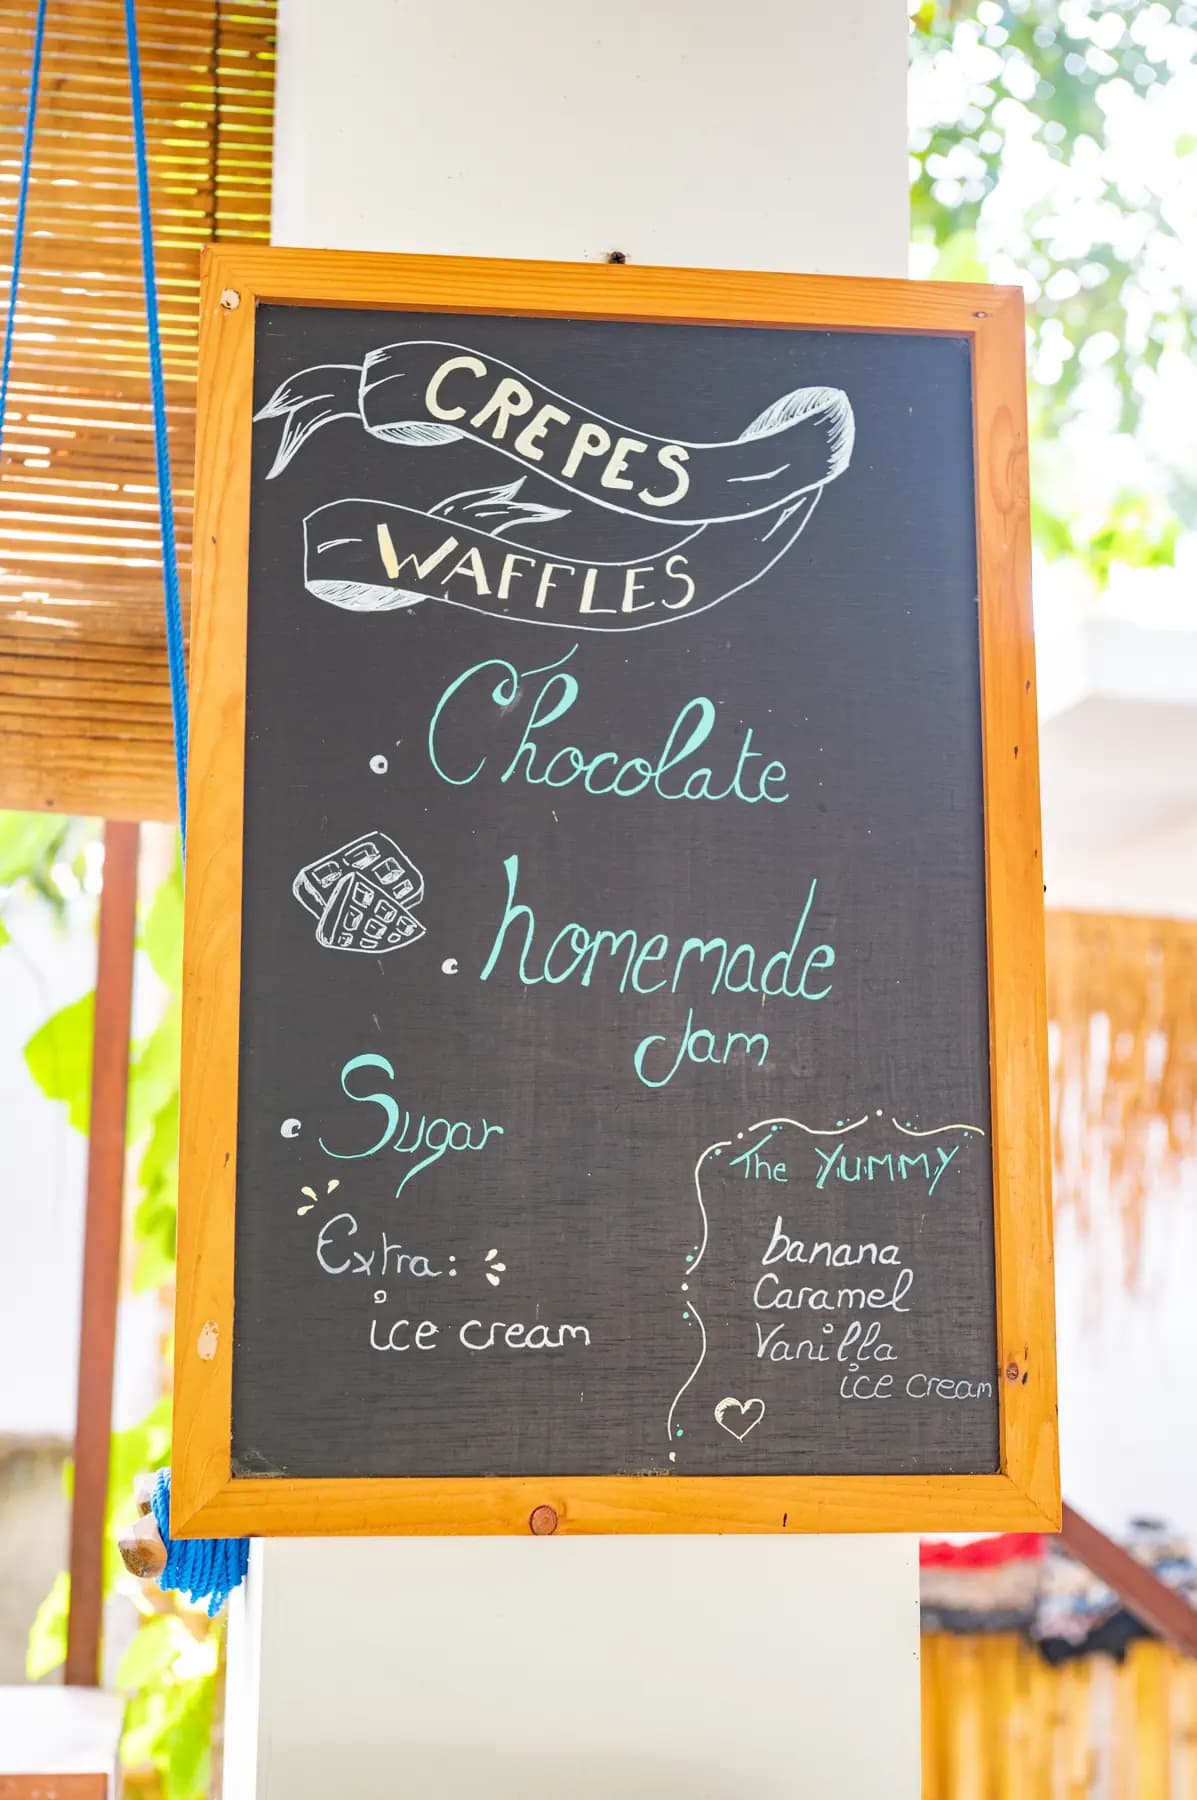 CREPES
WAFFLES
Chocolate
homemade
Jam
Sugar
Extra:
ice cream
The YUMMY
banana
Caramel
Vanilla
ice cream